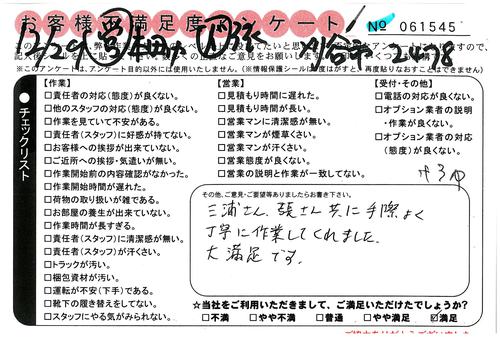 お客様不満足度アンケート
№ 061545
2478
※このアンケートは、アンケート目的以外には使用いたしません。(※情報保護シールは一度はがすと、再度貼りなおすことはできません)
チェックリスト
【作業】
□責任者の対応(態度)が良くない。
□他のスタッフの対応(態度)が良くない。
□作業を見ていて不安がある。
□責任者(スタッフ)に好感が持てない。
□お客様への挨拶が出来ていない。
□ご近所への挨拶・気遣いが無い。
□作業開始前の内容確認がなかった。
□作業開始時間が遅れた。
□荷物の取り扱いが雑である。
□お部屋の養生が出来ていない。
□作業時間が長すぎる。
□責任者(スタッフ)に清潔感が無い。
□責任者(スタッフ)が汗くさい。
□トラックが汚い。
□梱包資材が汚い。
□運転が不安(下手)である。
□靴下の履き替えをしてない。
□スタッフにやる気がみられない。
【営業】
□見積もり時間に遅れた。
□見積もり時間が長い。
□営業マンに清潔感が無い。
□営業マンが煙草くさい。
□営業マンが汗くさい。
□営業態度が良くない。
□営業の説明と作業が一致してない。
【受付・その他】
□電話の対応が良くない。
□オプション業者の説明・作業が良くない。
□オプション業者の対応(態度)が良くない。
その他、ご意見・ご要望等ありましたらお書き下さい。
三浦さん、張さん共に手際よく
丁寧に作業してくれました。
大満足です。
☆当社をご利用いただきまして、ご満足いただけたでしょうか?
□不満 □やや不満 □普通 □やや満足 ☑満足